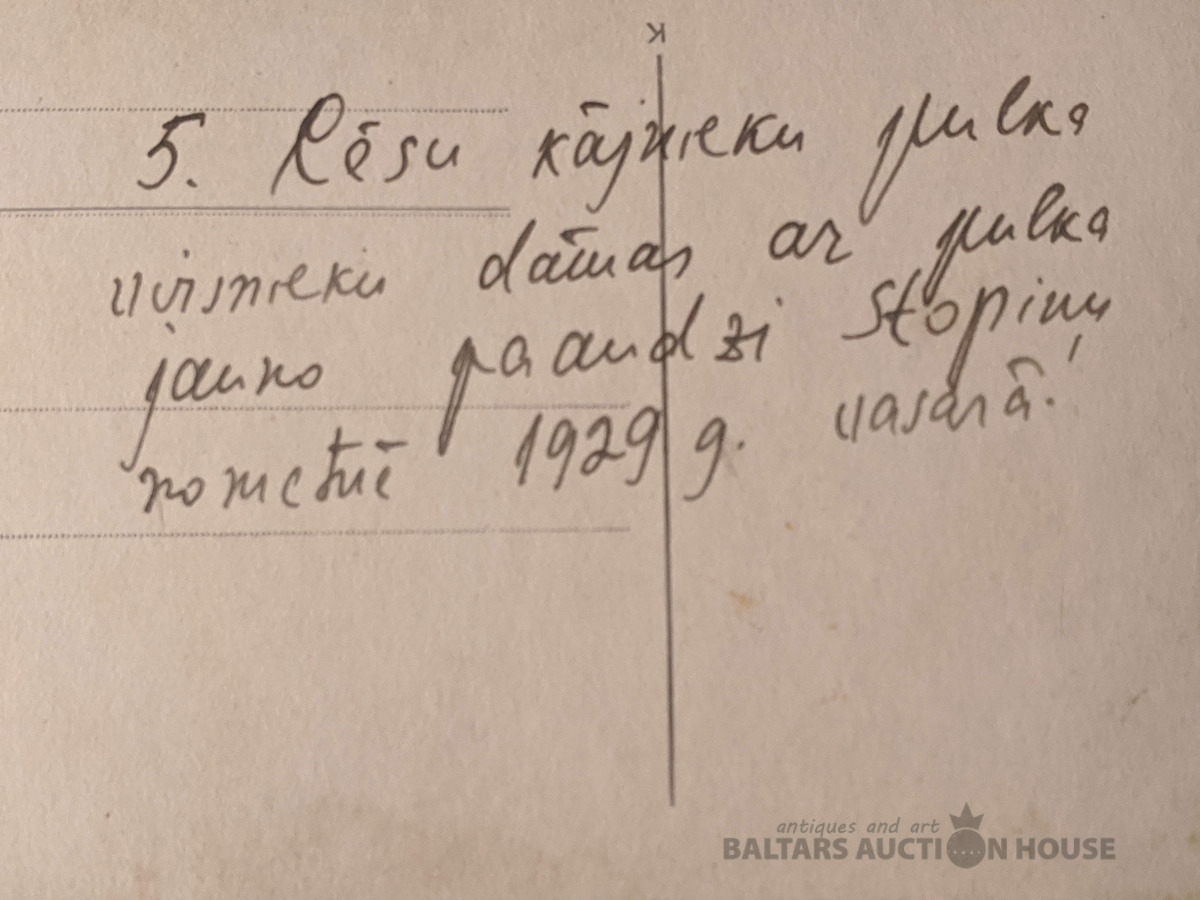 K
5. Cēsu kājnieku pulka
virsnieku dāmas ar pulka
jauno paaudzi Stopiņu
nometnē 1929 g. vasarā!
antiques and art
BALTARS AUCTION HOUSE